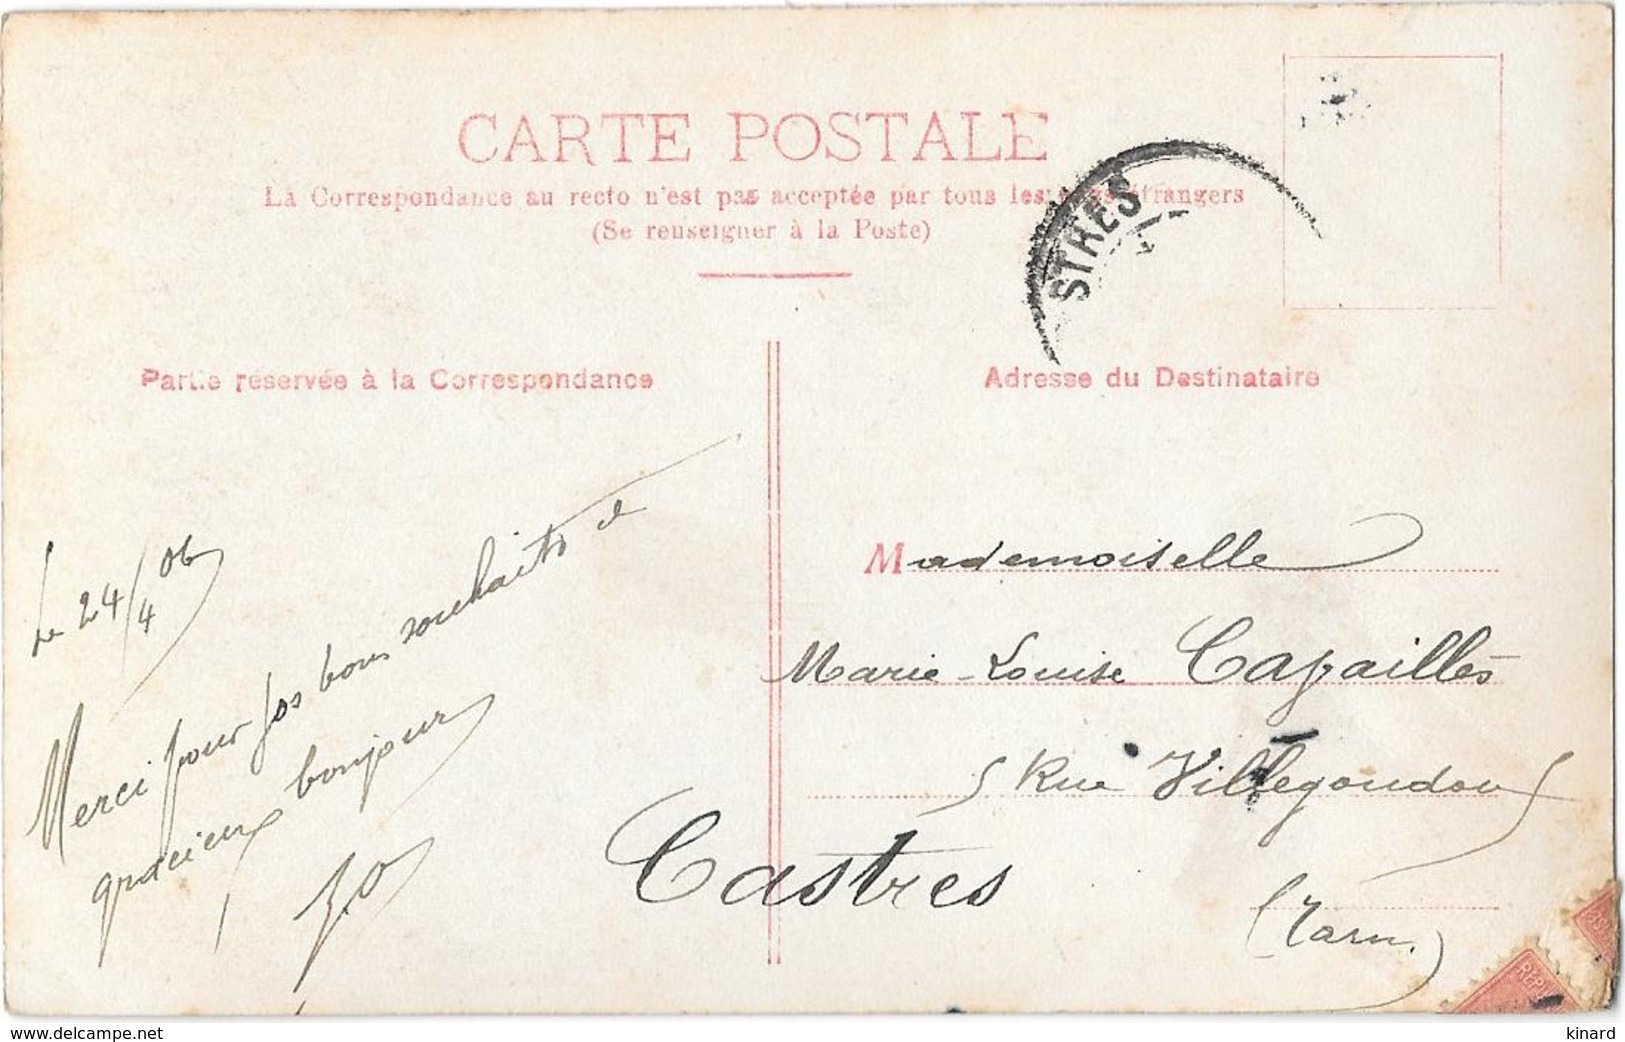 CARTE POSTALE
La Correspondance au recto n'est pas acceptée par tous les pays étrangers
(Se renseigner à la Poste)
STRES
Partie réservée à la Correspondance
Le 24/4 06
Merci pour vos bons souhaits &
gracieux bonjour
J.O
Adresse du Destinataire
Mademoiselle
Marie-Louise Capaillès
Rue Villegoudou
Castres
(Tarn.)
REPU
www.delcampe.net
kinard